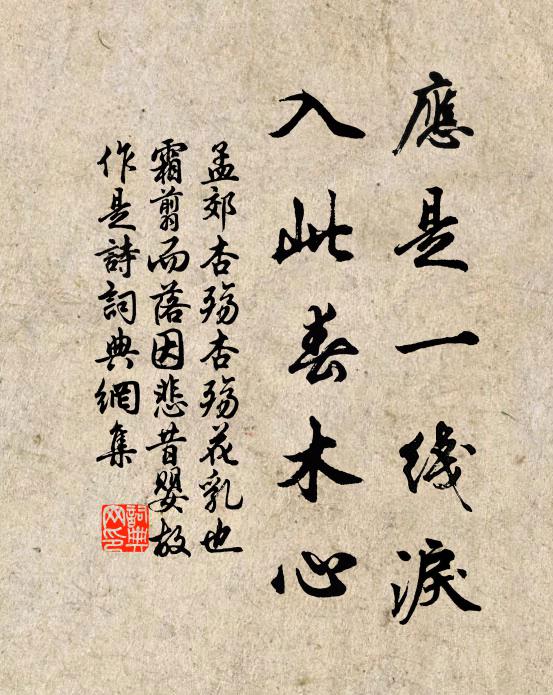 應是一綫淚
入此春木心
孟郊杏殤杏殤花乳也
霜翦而落因悲昔嬰故
作是詩詞典網集
詞典網印